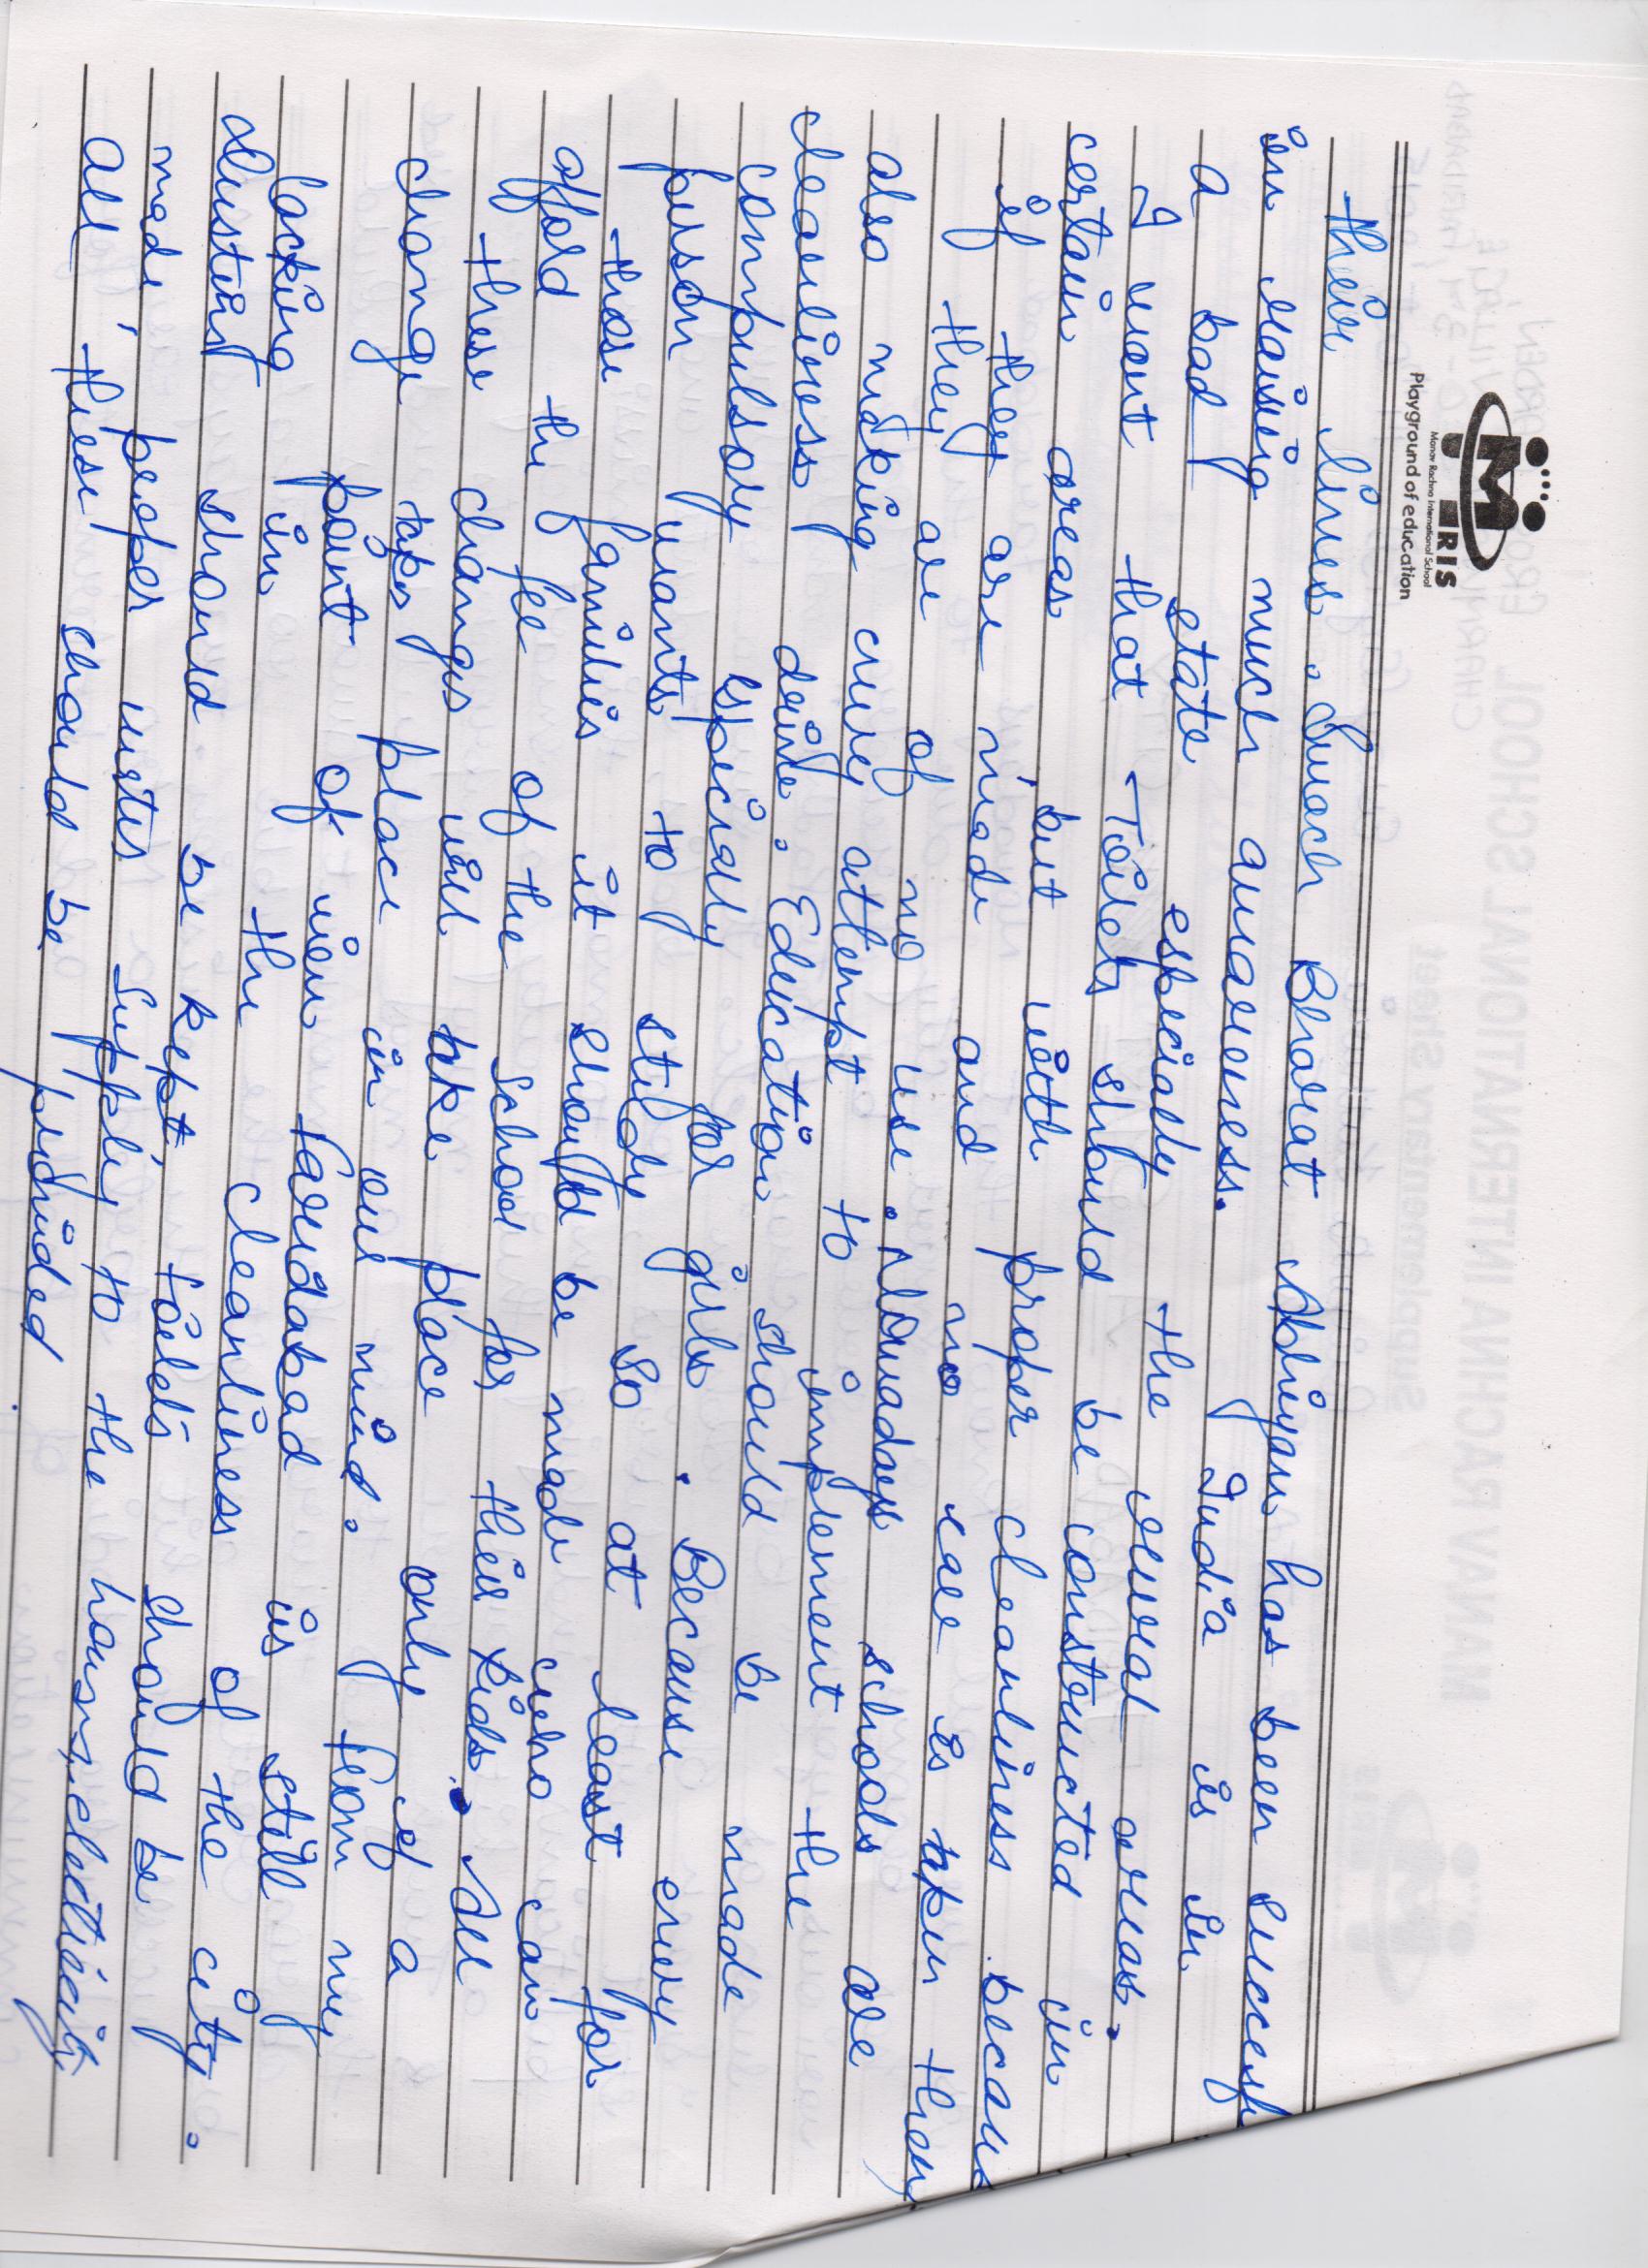 MRIS
Manav Rachna International School
Playground of education
their lives. Swach Bharat Abhiyan has been successf
in raising much awareness. India is in
a bad state especially the rural areas.
I want that Toilets should be constructed in
certain areas, but with proper cleanliness. becaus
if they are made and no care is taken then
they are of no use. Nowadays schools are
also making every attempt to implement the
cleanliness drive. Education should be made
compulsory especially for girls. Because every
person wants to study so at least for
those families it should be made who can
afford the fee of the school for their kids. All
these changes will take place only if a
change takes place in our mind.
point of view Faridabad is still
lacking in the cleanliness of the city.
dusting should be kept, toilets should be
made, proper water supply to the houses, electricity,
all these should be provided.
from my
MANAV RACHNA INTERNATIONAL SCHOOL
Supplementary Sheet